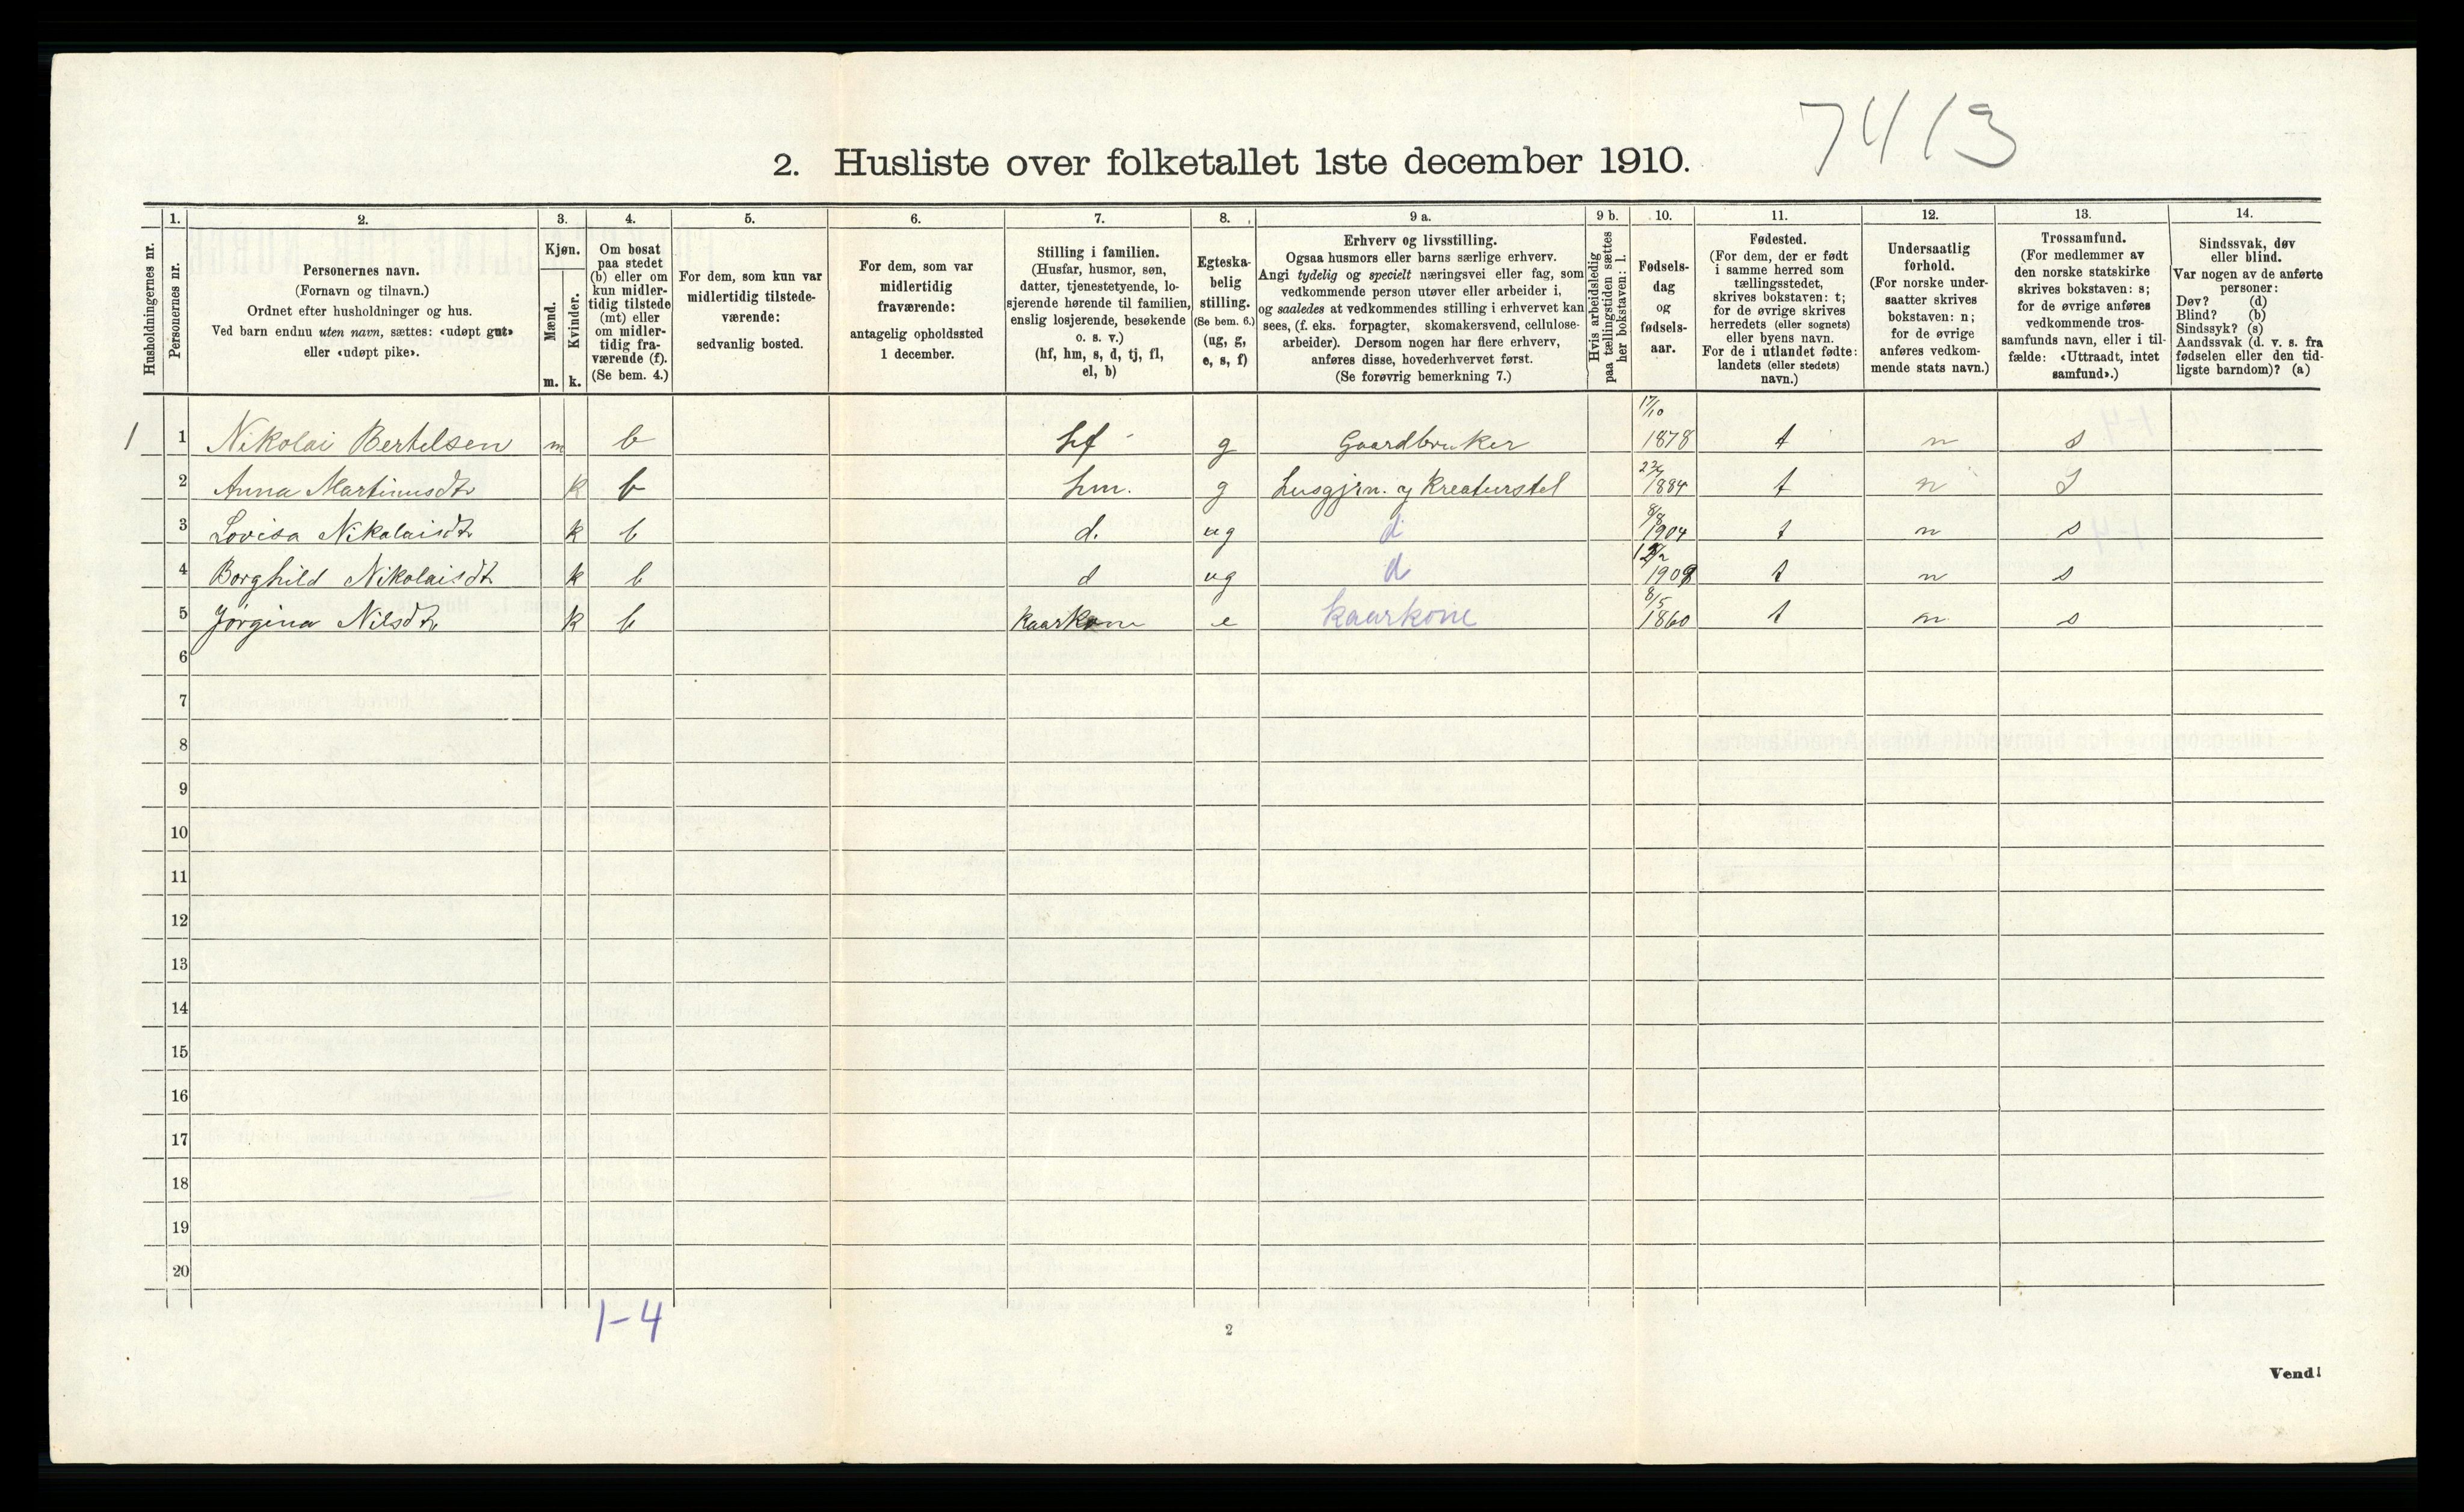 7413
2. Husliste over folketallet 1ste december 1910.
Husholdningernes nr.
1.
Personernes nr.
2.
Personernes navn.
(Fornavn og tilnavn.)
Ordnet efter husholdninger og hus.
Ved barn endnu uten navn, sættes: «udøpt gut»
eller «udøpt pike».
3.
Kjøn.
Mænd.
m.
Kvinder.
k.
4.
Om bosat
paa stedet
(b) eller om
kun midler-
tidig tilstede
(mt) eller
om midler-
tidig fra-
værende (f).
(Se bem. 4.)
5.
For dem, som kun var
midlertidig tilstede-
værende:
sedvanlig bosted.
6.
For dem, som var
midlertidig
fraværende:
antagelig opholdssted
1 december.
7.
Stilling i familien.
(Husfar, husmor, søn,
datter, tjenestetyende, lo-
sjerende hørende til familien,
enslig losjerende, besøkende
o. s. v.)
(hf, hm, s, d, tj, fl,
el, b)
8.
Egteska-
belig
stilling.
(Se bem. 6.)
(ug, g,
e, s, f)
9 a.
Erhverv og livsstilling.
Ogsaa husmors eller barns særlige erhverv.
Angi tydelig og specielt næringsvei eller fag, som
vedkommende person utøver eller arbeider i,
og saaledes at vedkommendes stilling i erhvervet kan
sees, (f. eks. forpagter, skomakersvend, cellulose-
arbeider). Dersom nogen har flere erhverv,
anføres disse, hovederhvervet først.
(Se forøvrig bemerkning 7.)
9 b.
Hvis arbeidsledig
paa tællingstiden sættes
her bokstaven: l.
10.
Fødsels-
dag
og
fødsels-
aar.
11.
Fødested.
(For dem, der er født
i samme herred som
tællingsstedet,
skrives bokstaven: t;
for de øvrige skrives
herredets (eller sognets)
eller byens navn.
For de i utlandet fødte:
landets (eller stedets)
navn.)
12.
Undersaatlig
forhold.
(For norske under-
saatter skrives
bokstaven: n;
for de øvrige
anføres vedkom-
mende stats navn.)
13.
Trossamfund.
(For medlemmer av
den norske statskirke
skrives bokstaven: s;
for de øvrige anføres
vedkommende tros-
samfunds navn, eller i til-
fælde: «Uttraadt, intet
samfund».)
14.
Sindssvak, døv
eller blind.
Var nogen av de anførte
personer:
Døv? (d)
Blind? (b)
Sindssyk? (s)
Aandssvak (d. v. s. fra
fødselen eller den tid-
ligste barndom)? (a)
1 1 Nikolai Bertelsen m b hf g Gaardbruker 17/10 1878 t n s
2 Anna Martinusdtr k b hm. g husgjrn. og Kreaturstel 1884 t n S
3 Lovisa Nikolaisdtr k b d. ug d 8/8 1904 t n s
4 Borghild Nikolaisdtr k b d ug d 1909 t n s
5 Jørgina Nilsdtr k b Kaarkone e kaarkone 8/5 1860 t n s
6
7
8
9
10
11
12
13
14
15
16
17
18
19
20
1-4
2
Vend!